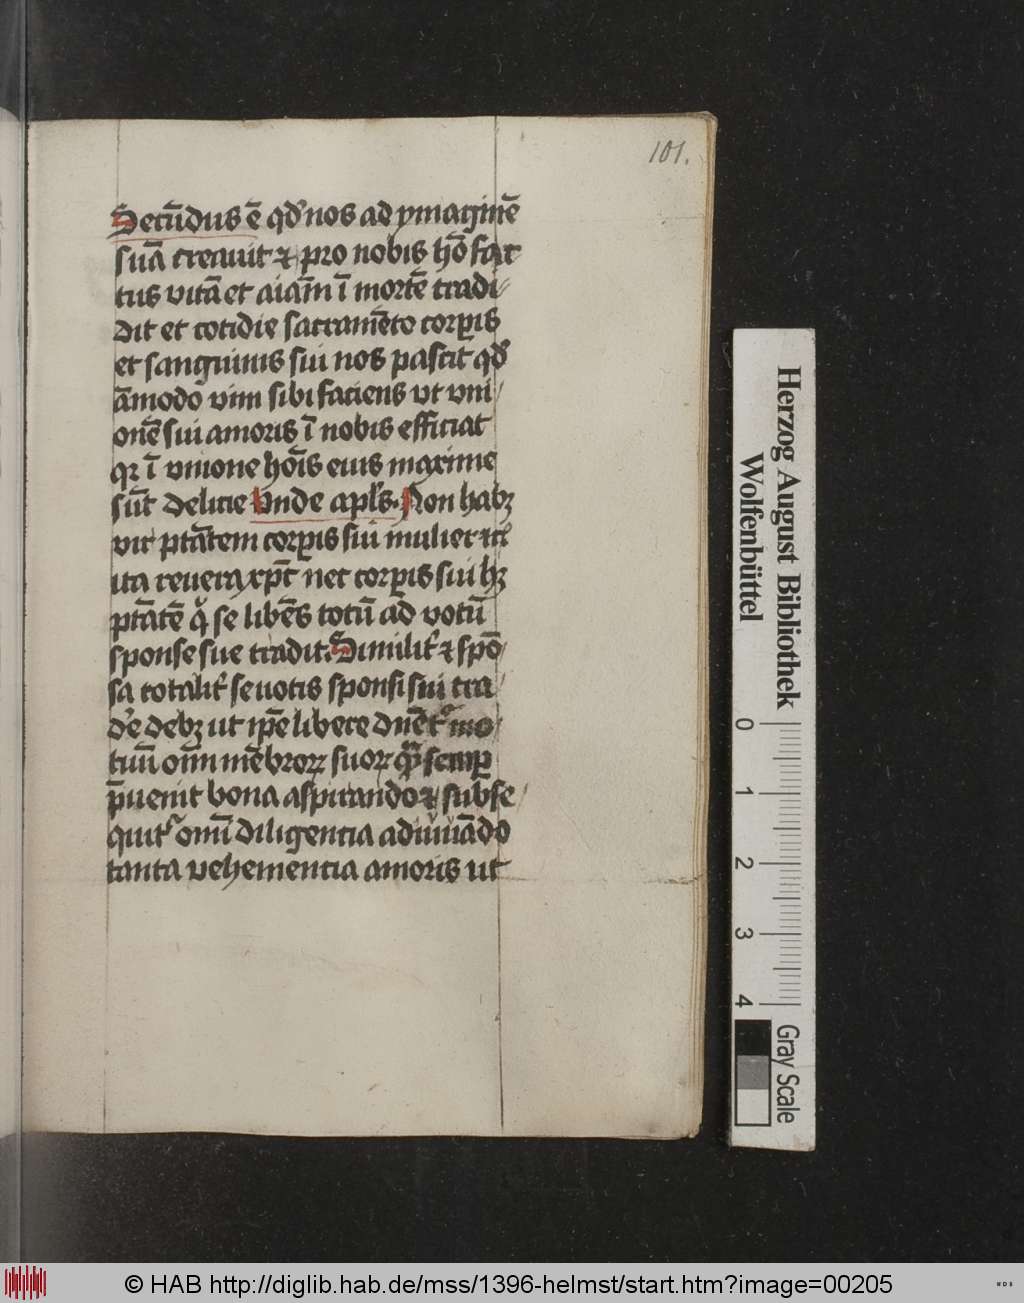 101.
Secūdus ē qd' nos ad ymaginē
suā creauit & pro nobis hō fac
tus vitā et aīam ī mortē tradi
dit et cotidie sacramēto corpis
et sanguinis sui nos pascit qd'
āmodo vim sibi faciens vt vni
onē sui amoris ī nobis efficiat
qr ī vnione hoīs eius maxime
sūt delicie Vnde apl's. Non habꝫ
vir ptātem corpis sui mulier
ita reuera xpc̄ nec corpis sui hꝫ
ptātē se libēs totū ad votū
sponse sue tradit. Similit' & spō
sa totalit' se uotis sponsi sui tra
d'e debꝫ ut ip̄e libere dn̄et' mo
tuū om̄ mēbroꝝ suoꝝ semp
p̄uenit bona aspirando & subse
quit' omī diligencia
tanta vehemencia amoris ut
Herzog August Bibliothek
Wolfenbüttel
0 1 2 3 4
Gray Scale
© HAB http://diglib.hab.de/mss/1396-helmst/start.htm?image=00205
WDB